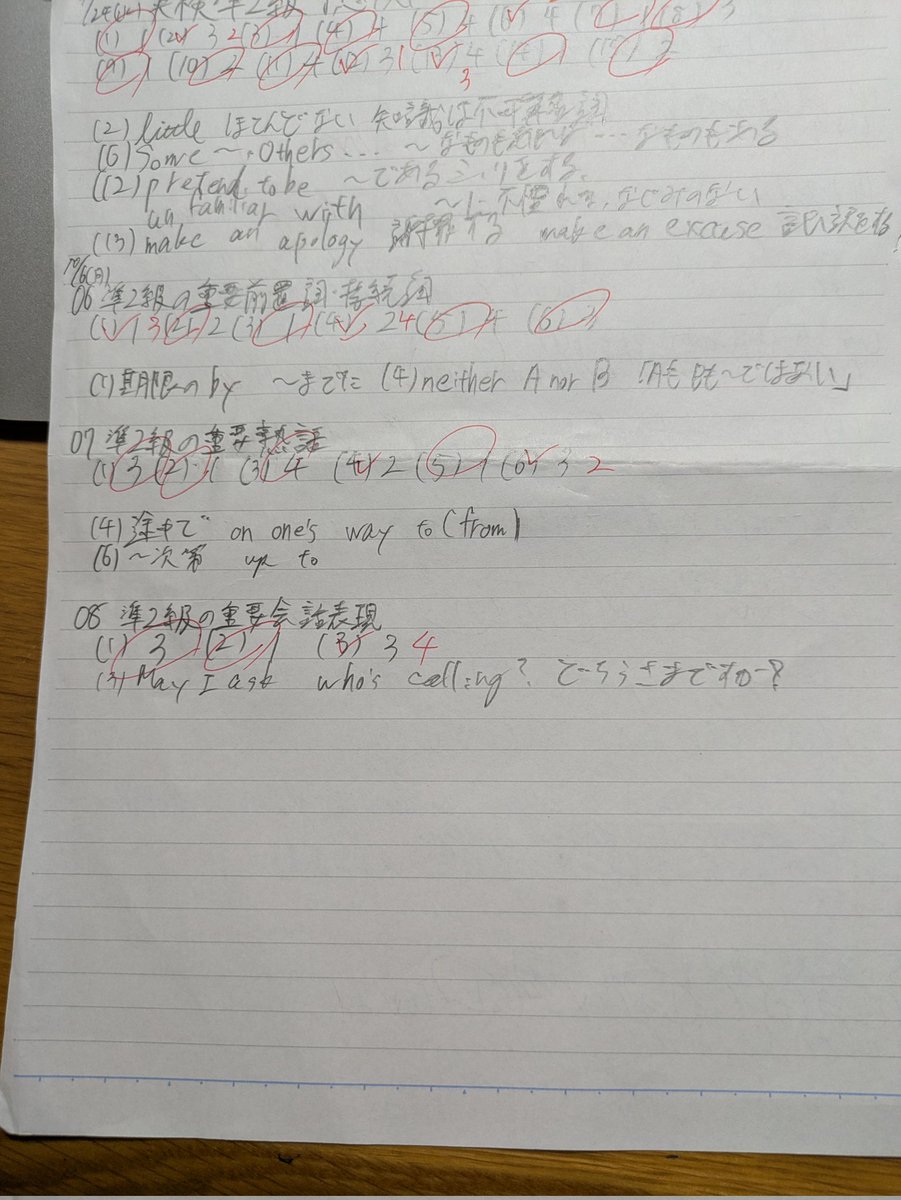 準2級
(1) 1 (2) 3 2 (3) 1 (4) 4 (5) 4 (6) 4 (7) 1 (8) 3
(9) 1 (10) 2 (11) 4 (12) 3 1 (13) 4 3
(2) little ほとんどない 知識は不可算名詞
(6) Some ~, Others... ~なものもあれば …なものもある
(12) pretend to be ~であるふりをする。
unfamiliar with ~に不慣れな、なじみのない
(13) make an apology 謝罪する make an excuse 言い訳をする
10/6(月)
06 準2級の重要前置詞・接続詞
(1) 1 3 (2) 2 (3) 1 (4) 2 4 (5) 4 (6) 3
(1) 期限のby ~までに (4) neither A nor B 「AもBも~ではない」
07 準2級の重要熟語
(1) 3 (2) 1 (3) 4 (4) 2 (5) 1 (6) 3 2
(4) 途中で on one's way to (from)
(6) ~次第 up to
08 準2級の重要会話表現
(1) 3 (2) 1 (3) 3 4
(3) May I ask who's calling? どちらさまですか?